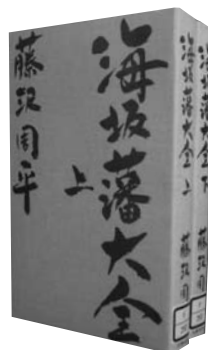 海坂藩大全
上
藤沢周平
海坂藩大全 上
藤沢周
海坂藩大全 下
藤沢周